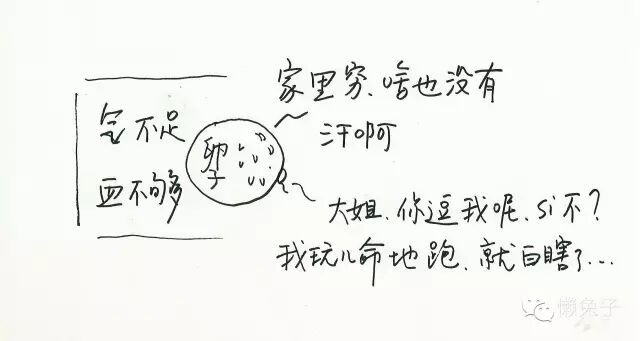 家里穷、啥也没有
汗啊
气不足
血不够
卵子
大姐、你逗我呢、si不?
我玩儿命地跑、就白瞎了...
懒兔子